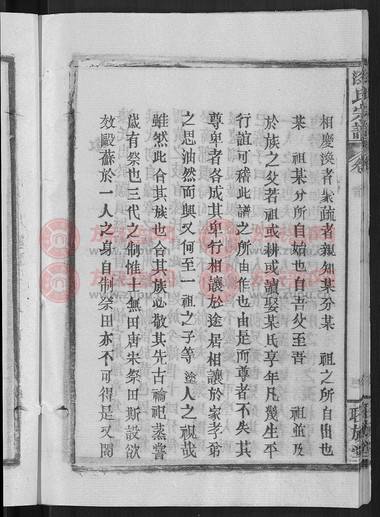 相慶渙者聚疏者親知某分某　祖之所自出也
某　祖某分所自始也自吾父至吾　祖並及
於族之父若祖或耕或讀娶某氏享年凡幾生平
行誼可稽此譜之所由作也由是而尊者不失其
尊卑者各成其卑行相讓於途居相讓於家孝弟
之思油然而與又何至一祖之子等塗人之視哉
雖然此合其族也合其族必敬其先古禴祀蒸嘗
歲有祭也三代之制惟士無田唐宋祭田斯設欲
效毆蘇於一人之身自制祭田亦不可得是又閤
氏宗譜